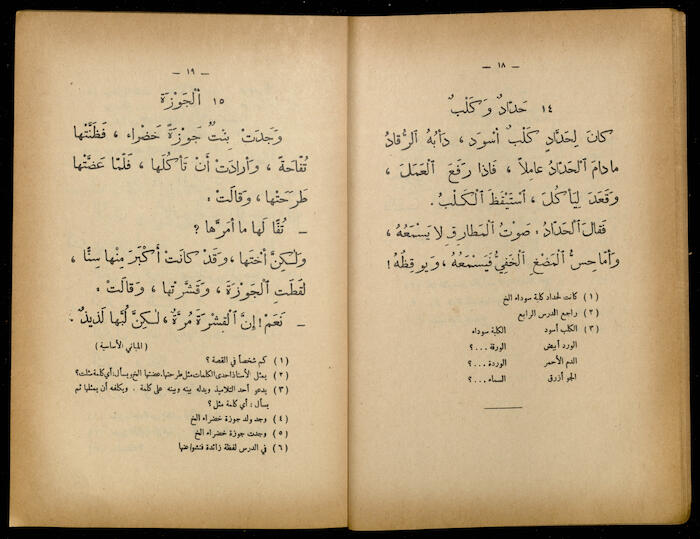 — ١٨ —
١٤ حَدّادٌ وَكَلْبٌ
كانَ لِحَدّادٍ كَلْبٌ أَسْوَد ، دَأبُهُ الرُّقادُ
مادامَ الْحَدّادُ عامِلاً ، فَاذا رَفَعَ الْعَمَلَ ،
وَقَعَدَ لِيَأكُلَ ، اسْتَيْقَظَ الْكَلْبُ .
فَقالَ الْحَدّادُ : صَوْتُ الْمَطارِقِ لا يَسْمَعُهُ ،
وَأَمّا حِسُّ الْمَضْغِ الْخَفِيُّ فَيَسْمَعُهُ ، وَيوقِظُهُ !
(١) كانت لحداد كلبة سوداء الخ
(٢) راجع الدرس الرابع
(٣) الكلب أسود الكلبة سوداء
الورد أبيض الورقة ...؟
الدم الأحمر الوردة ...؟
الجو أزرق السماء ...؟
— ١٩ —
١٥ الْجَوْزَة
وَجَدَتْ بِنْتٌ جَوْزَةً خَضْراء ، فَظَنَّتْها
تُفّاحَةً ، وَأرادَتْ أَنْ تَأكُلَها ، فَلَمّا عَضَّتْها
طَرَحَتْها ، وَقالَتْ :
— تُفّاً لَها ما أَمَرَّها ؟
وَلٰكِنَّ أُخْتَها ، وَقَدْ كانَتْ أَكْبَرَ مِنْها سِنّاً ،
لَقَطَتِ الْجَوْزَةَ ، وَقَشَّرَتْها ، وَقالَتْ :
— نَعَمْ ! إِنَّ الْقِشْرَةَ مُرَّةٌ ، لٰكِنَّ لُبَّها لَذيذٌ .
(المباني الأساسية)
(١) كم شخصاً في القصة ؟
(٢) يمثل الأستاذ احدى الكلمات مثل طرحتها، عضتها الخ، ويسأل: أي كلمة مثلت؟
(٣) يدعو أحد التلاميذ ويدله بينه وبينه على كلمة . ويكلفه أن يمثلها ثم
يسأل : أي كلمة مثل ؟
(٤) وجد ولد جوزة خضراء الخ
(٥) وجدت جوزة خضراء الخ
(٦) في الدرس لفظة زائدة فتشوا عنها